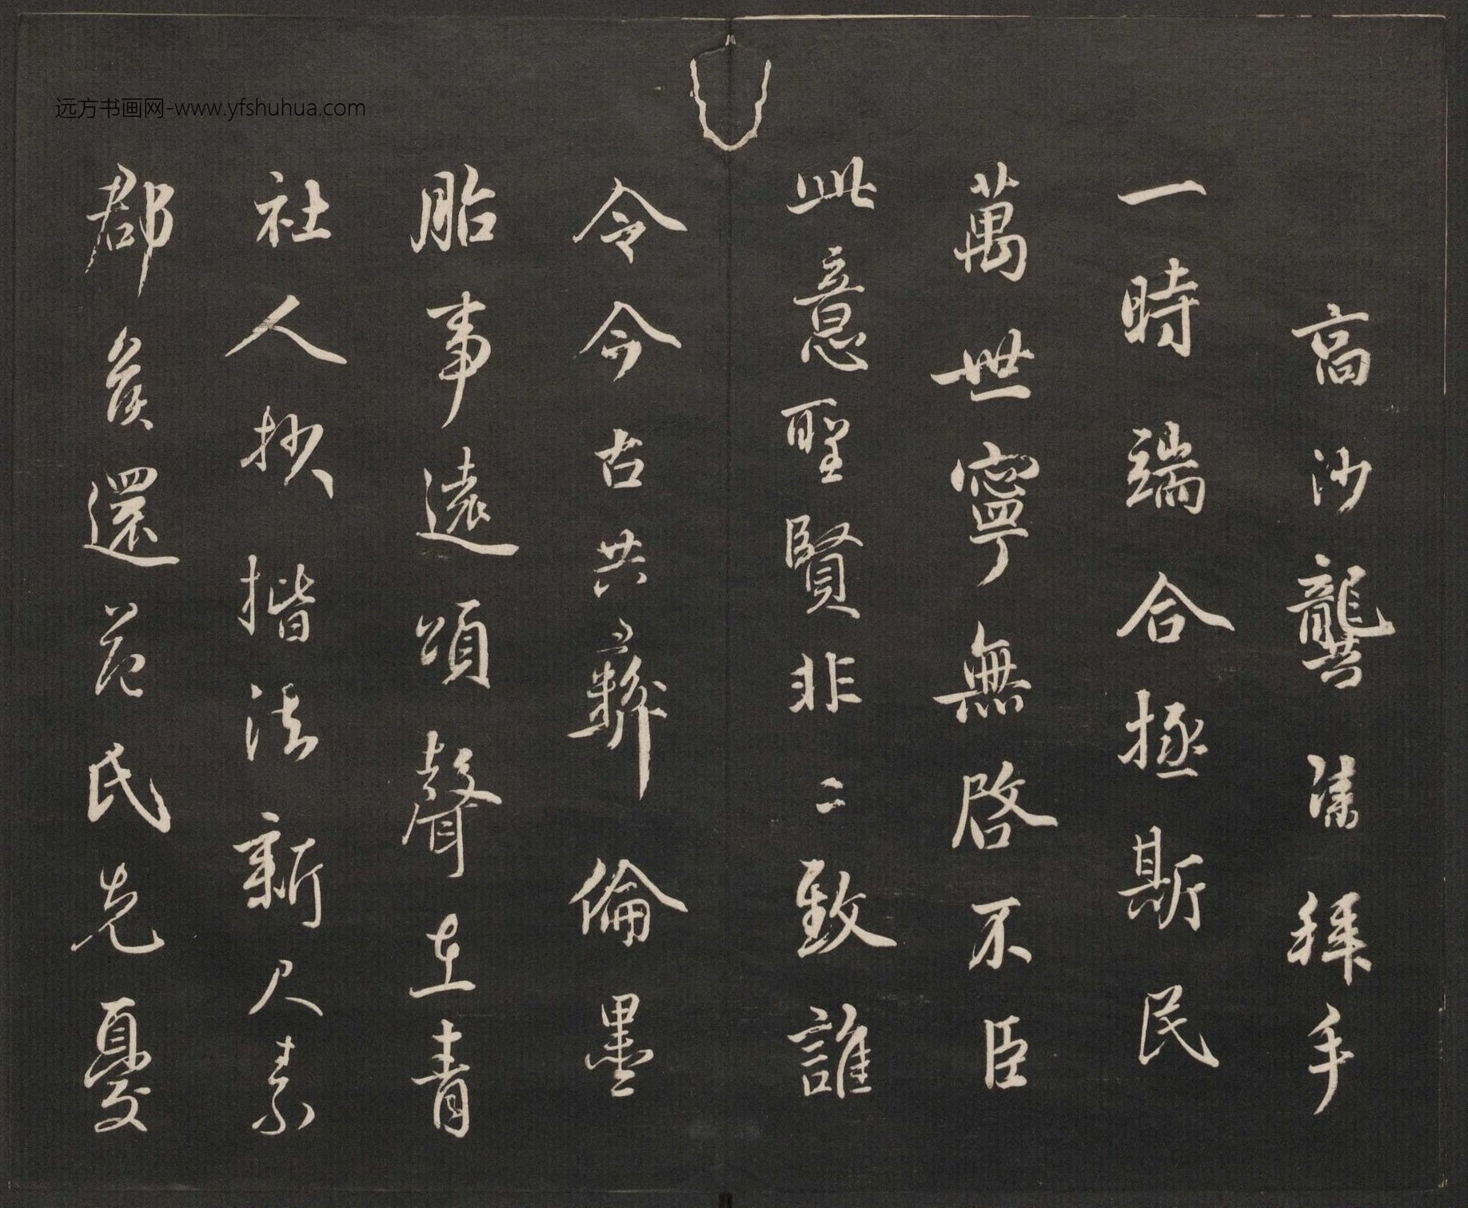 远方书画网-www.yfshuhua.com
高沙龔璛拜手
一時端合拯斯民
萬世寧無啓不臣
此意聖賢非二致誰
令今古共彝倫墨
胎事遠頌聲在青
社人抄揩法新尺素
郡侯還范氏先憂